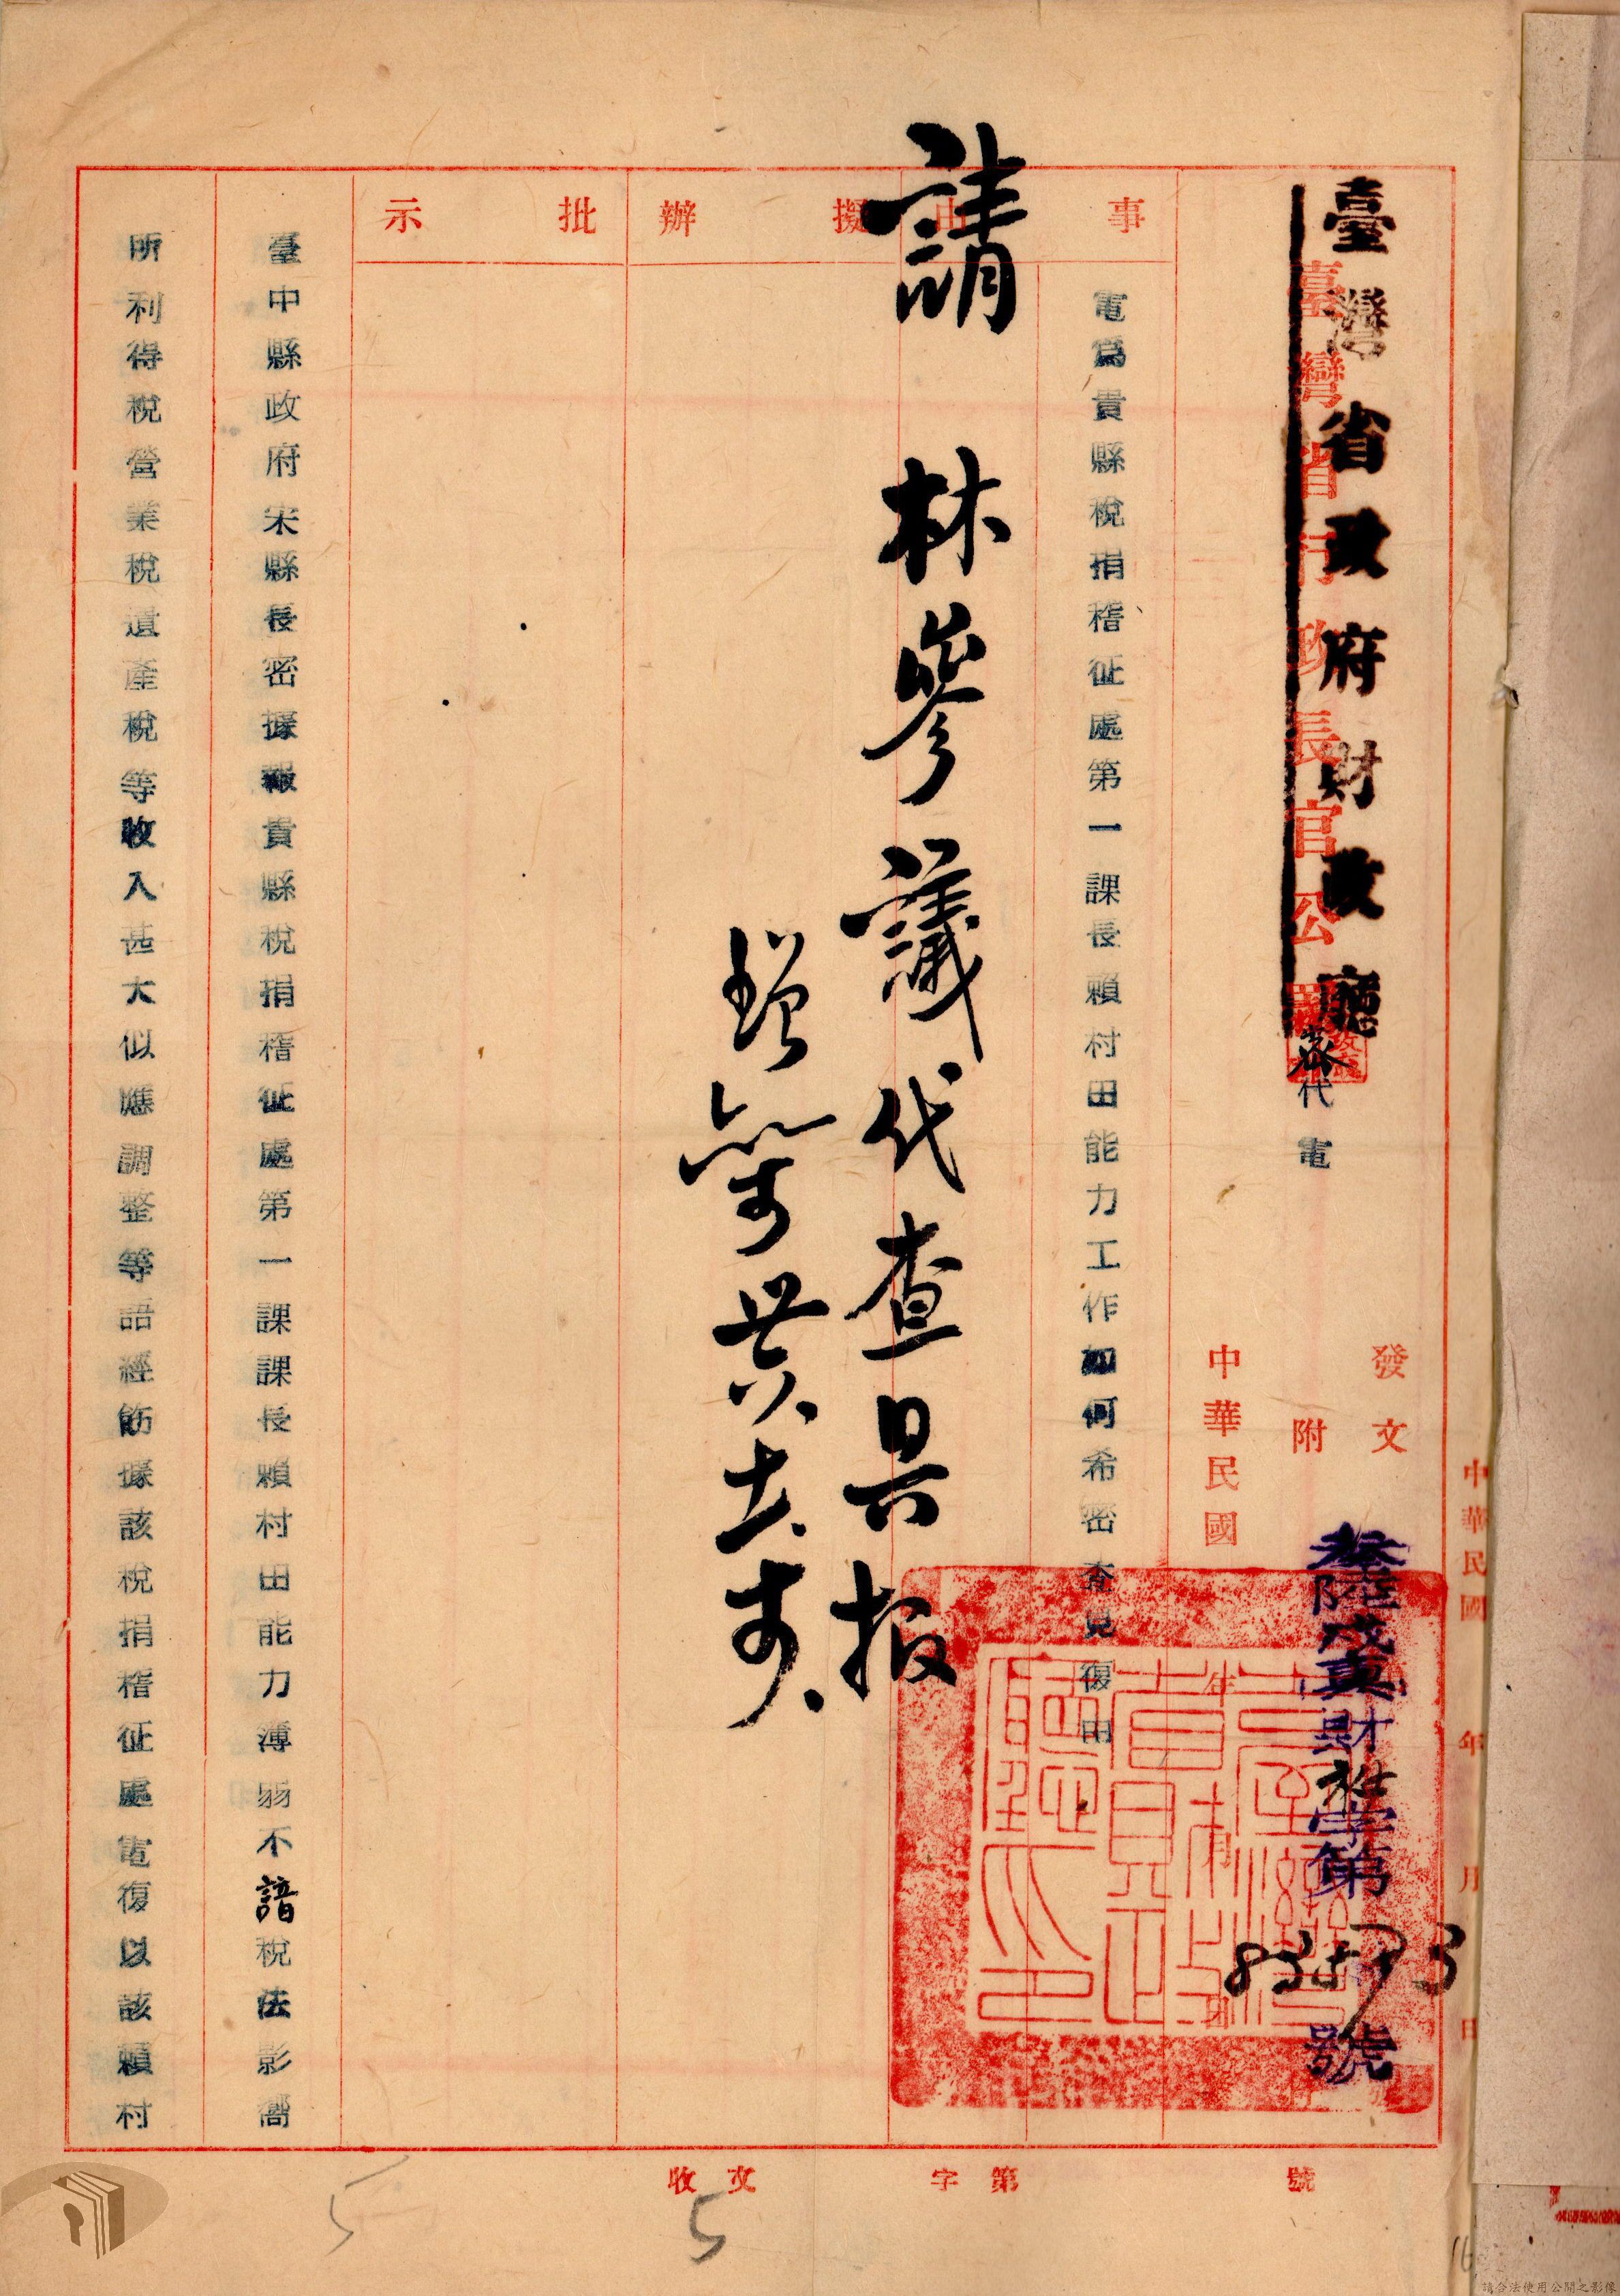 臺灣省政府財政廳
臺灣省行政長官公署
代電
發文
附
參陸戌真財
字第
號
中華民國
中華民國 年 月 日
事由
電為貴縣稅捐稽征處第一課長賴村田能力工作如何希密查見復由
擬辦
請 林參議代查具報
批示
臺中縣政府宋縣長密據報貴縣稅捐稽征處第一課課長賴村田能力薄弱不諳稅法影響
所利得稅營業稅遺產稅等收入甚大似應調整等語經飭據該稅捐稽征處電復以該賴村
收文 字第 號
5
5
請合法使用公開之影像